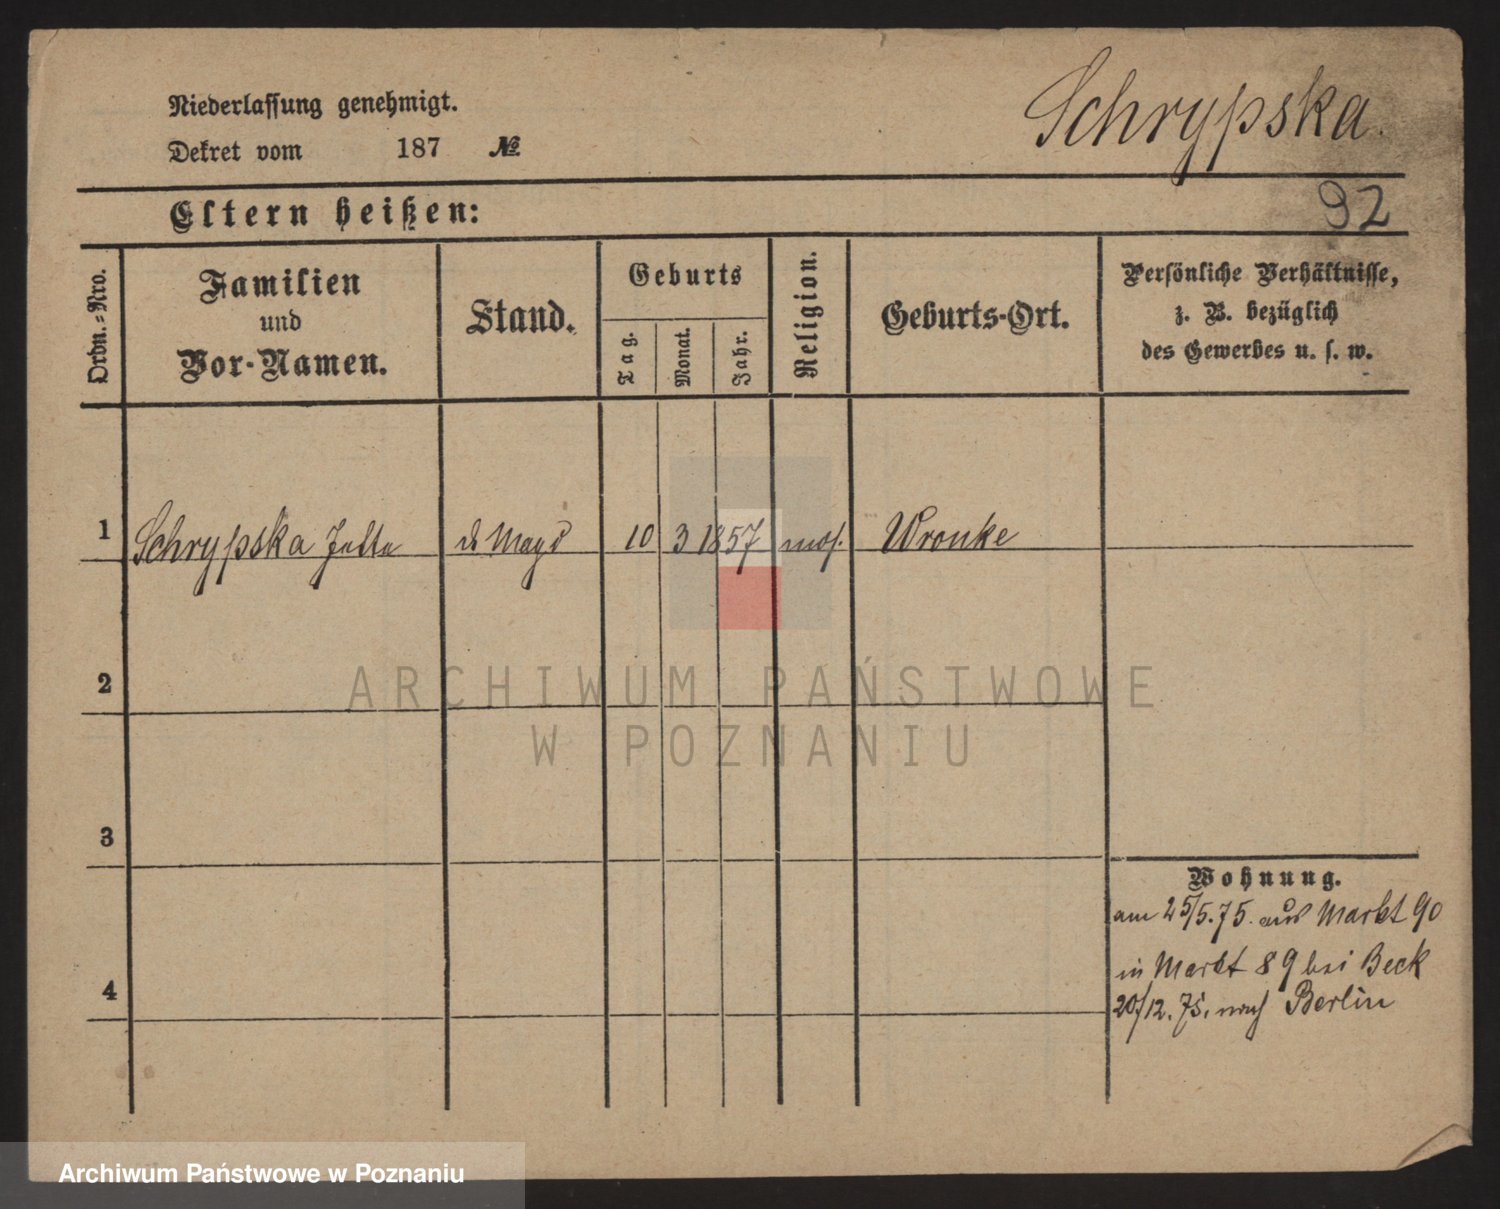 Niederlassung genehmigt.
Dekret vom 187 №
Schrypska.
Eltern heißen:
92
Ordn.-Nro.
Familien
und
Vor-Namen.
Stand.
Geburts
Tag.
Monat.
Jahr.
Religion.
Geburts-Ort.
Persönliche Verhältnisse,
z. B. bezüglich
des Gewerbes u. s. w.
1 Schrypska Jette 10 3 1857 mos. Wronke
2
ARCHIWUM PAŃSTWOWE
W POZNANIU
3
Wohnung.
am 25/5.75. aus Markt 90
in Markt 89 bei Beck
4
20/12.75. nach Berlin
Archiwum Państwowe w Poznaniu